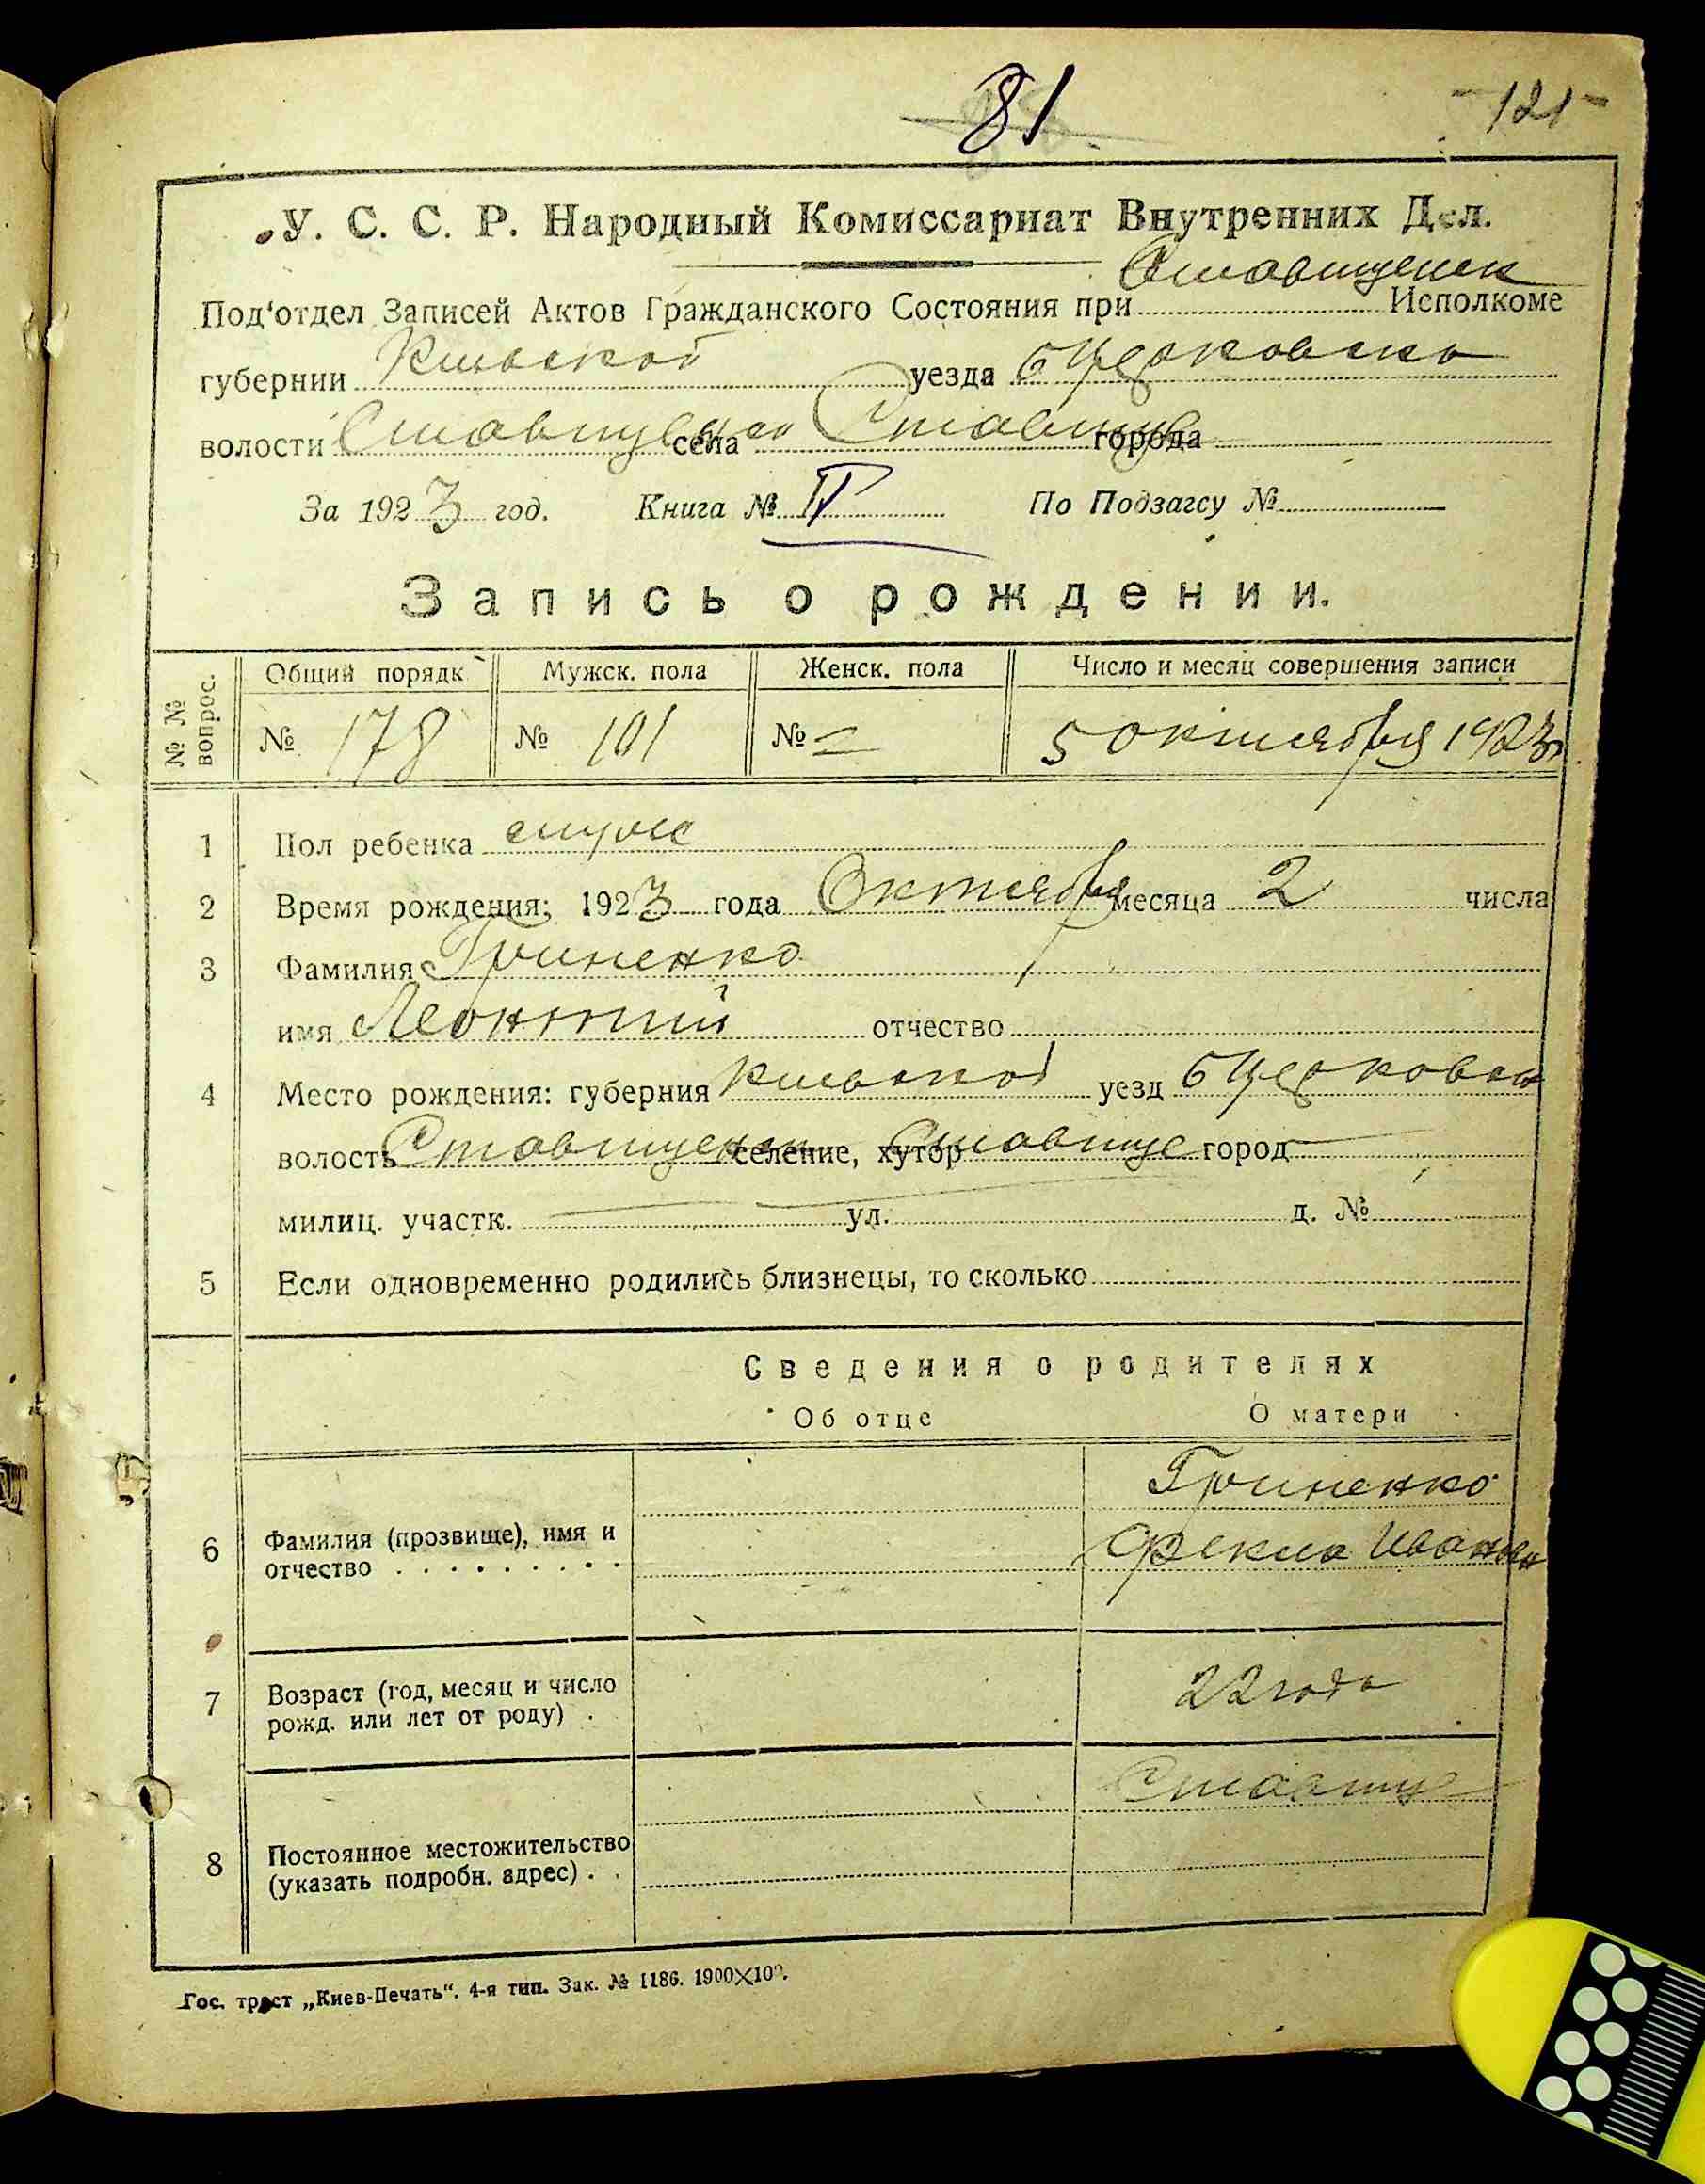 81
-121-
У. С. С. Р. Народный Комиссариат Внутренних Дел.
Ставищенск
Под'отдел Записей Актов Гражданского Состояния при Исполкоме
губернии Киевской уезда бЦерковско
волости Ставищенск села Ставище города
За 1923 год. Книга № IV По Подзагсу №
Запись о рождении.
№ № вопрос. Общий порядк Мужск. пола Женск. пола Число и месяц совершения записи
№ 178 № 101 № = 5 октября 1923
1 Пол ребенка муж
2 Время рождения; 1923 года Октября месяца 2 числа
3 Фамилия Гриненко
имя Леонтий отчество
4 Место рождения: губерния Киевской уезд бЦерковск
волость Ставищенск селение, хутор Ставище город
милиц. участк. ул. д. №
5 Если одновременно родились близнецы, то сколько
Сведения о родителях
Об отце О матери
Гриненко
6 Фамилия (прозвище), имя и Фекла Ивановн
отчество
7 Возраст (год, месяц и число 22 года
рожд. или лет от роду)
Ставище
8 Постоянное местожительство
(указать подробн. адрес)
Гос. трест „Киев-Печать". 4-я тип. Зак. № 1186. 1900×100.